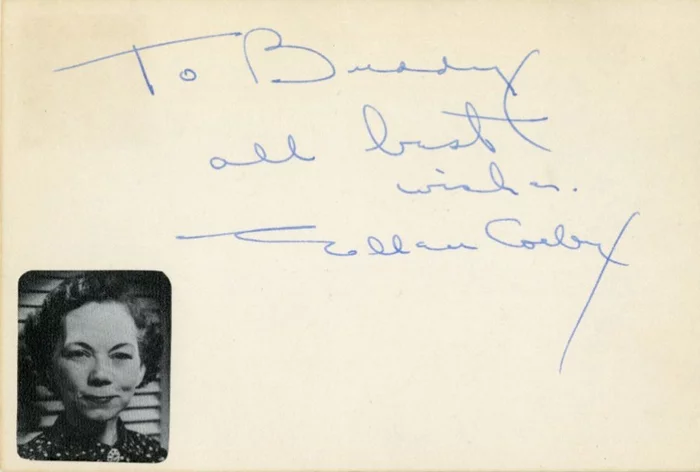 To Buddy
all best
wishes.
Ellen Corby